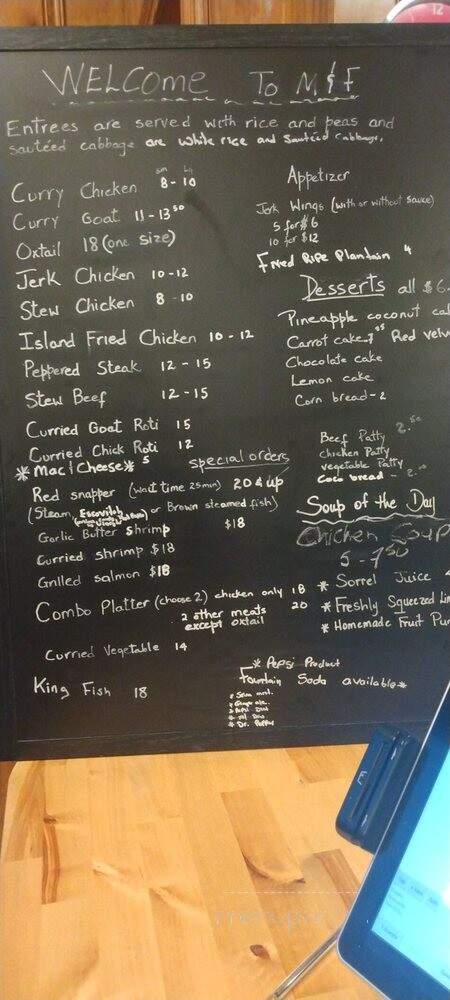 WELCOME To M & F
Entrees are served with rice and peas and
sautéed cabbage are white rice and sautéed cabbage.
sm lg
Curry Chicken 8 - 10
Curry Goat 11 - 13 50
Oxtail 18 (one size)
Jerk Chicken 10 - 12
Stew Chicken 8 - 10
Island Fried Chicken 10 - 12
Peppered Steak 12 - 15
Stew Beef 12 - 15
Curried Goat Roti 15
Curried Chick Roti 12
*Mac & Cheese* 5
special orders
Red snapper (wait time 25min) 20 & up
(Steam, Escovitch or Brown steamed fish)
Garlic Butter Shrimp $18
Curried shrimp $18
Grilled salmon $18
Combo Platter (choose 2) chicken only 18
2 other meats 20
except oxtail
Curried Vegetable 14
King Fish 18
Appetizer
Jerk Wings (with or without sauce)
5 for $6
10 for $12
Fried Ripe Plantain 4
Desserts all $6.
Pineapple coconut ca
Carrot cake Red velv
Chocolate cake
Lemon cake
Corn bread - 2
Beef Patty 2.50
chicken Patty
vegetable Patty
Coco bread - 2.00
Soup of the Day
Chicken Soup
5 - 7 50
* Sorrel Juice
* Freshly Squeezed Li
* Homemade Fruit Pun
* Pepsi Product
Fountain Soda available*
* Ginger ale
* Dr. Pepper
12